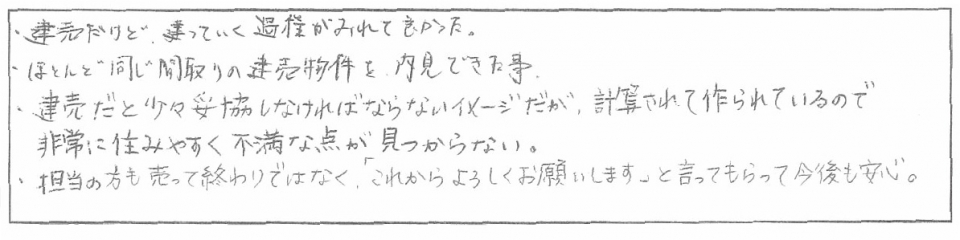 ・建売だけど、建っていく過程がみれて良かった。
・ほとんど同じ間取りの建売物件を、内見できた事。
・建売だと少々妥協しなければならないイメージだが、計算されて作られているので
非常に住みやすく不満な点が見つからない。
・担当の方も売って終わりではなく、「これからよろしくお願いします」と言ってもらって今後も安心。